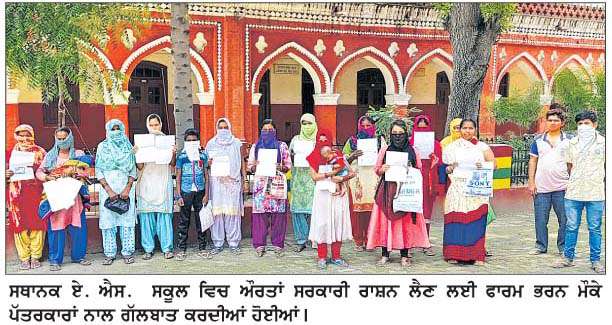 SONY
ਸਥਾਨਕ ਏ. ਐਸ. ਸਕੂਲ ਵਿਚ ਔਰਤਾਂ ਸਰਕਾਰੀ ਰਾਸ਼ਨ ਲੈਣ ਲਈ ਫਾਰਮ ਭਰਨ ਮੌਕੇ
ਪੱਤਰਕਾਰਾਂ ਨਾਲ ਗੱਲਬਾਤ ਕਰਦੀਆਂ ਹੋਈਆਂ।